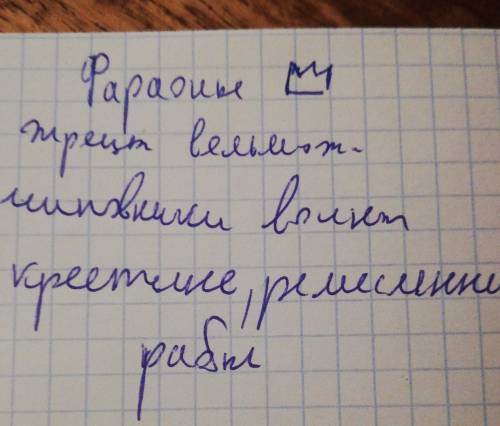 Фараоны
жрецы вельмож-
чиновники воины
крестьяне, ремесленни
рабы